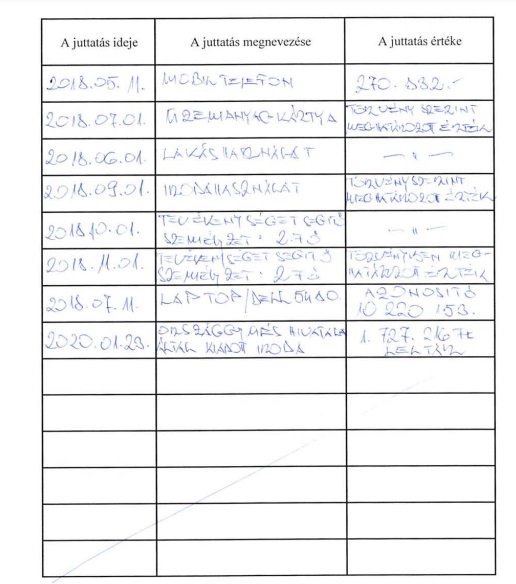 A juttatás ideje A juttatás megnevezése A juttatás értéke
2018.05.11. MOBILTELEFON 270.832.-
2018.07.01. ÜZEMANYAG-KÁRTYA TÖRVÉNY SZERINT
MEGHATÁROZOTT ÉRTÉK
2018.06.01. LAKÁSHASZNÁLAT — " —
2018.09.01. IRODAHASZNÁLAT TÖRVÉNY SZERINT
MEGHATÁROZOTT ÉRTÉK
2018.10.01. TEVÉKENYSÉGET SEGÍTŐ
SZEMÉLYZET: 2.7 FŐ — " —
2018.11.01. TEVÉKENYSÉGET SEGÍTŐ TÖRVÉNYBEN MEG-
SZEMÉLYZET: 2.7 FŐ HATÁROZOTT ÉRTÉK
2018.07.11. LAPTOP/DELL 5480 AZONOSÍTÓ
10 220 153.
2020.01.23. ORSZÁGGYŰLÉS HIVATALA 1.727.216 Ft
ÁLTAL KIADOTT IRODA LELTÁR